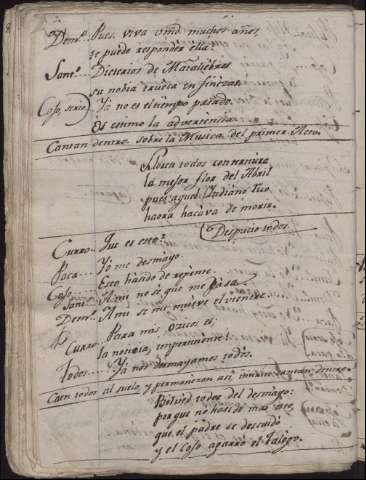 Dem.ª Pues, viva vmd muchos años,
se puede responder ella?
Sant.º Dicterios de
su novia en finezas.
Coso, serio. Ya no es el tiempo pasado.
Os estimo la advertencia.
Cantan dentro sobre la Musica del primer Acto.
Lloren todos con ternura
la mejor flor del Abril
pues aquel Indiano Tuo
haora acava de morir.
Despacio todos.
Curro. Que es esto?
Paca... Yo me desmayo.
Coso... Esto ha sido de repente.
Sant.º A mi no sé que me pasa.
Dem.ª A mi se me mueve el vientre.
Curro. Para mas es,
la novicia, impertinente!
Todos... Ya nos desmayamos todos.
Caen todos al suelo, y permanecen así, mientras cantan dentro
Bolved todos del desmayo:
porque no ha sido mas
que el padre se descuidó
y el Coso agarró el talego.